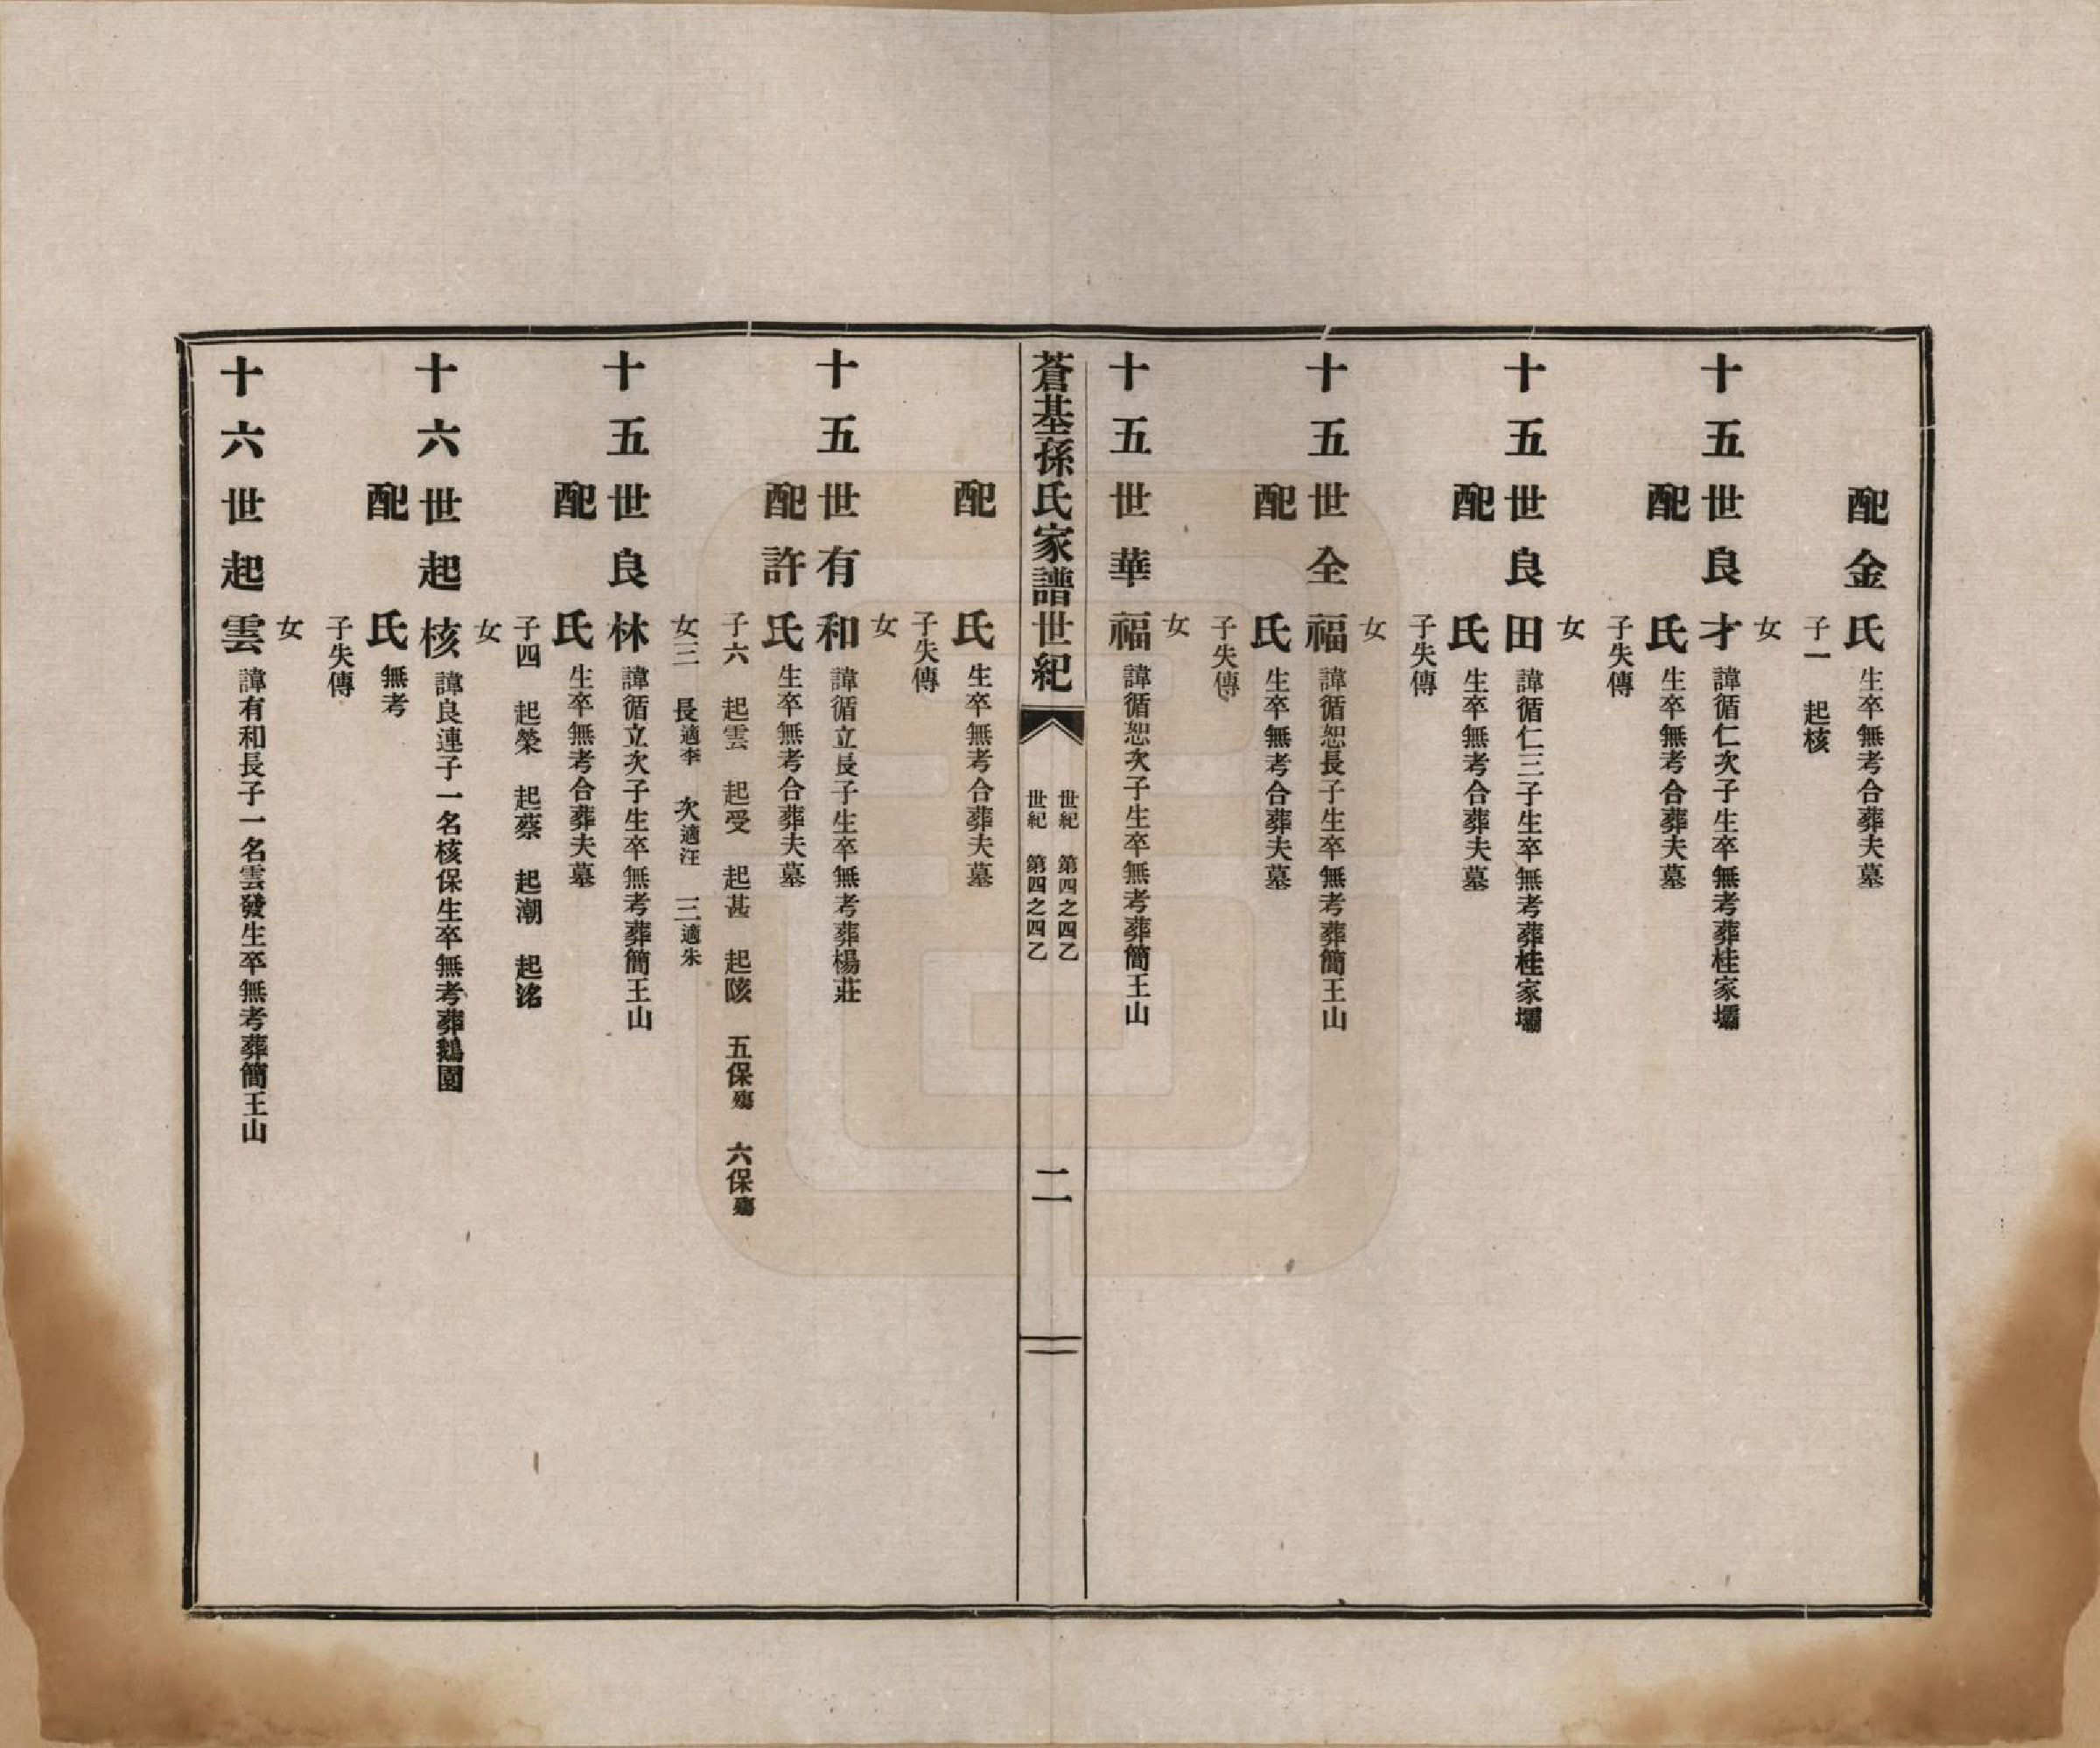 配金氏 生卒無考合葬夫墓
子一 起核
女
十五世良才 諱循仁次子生卒無考葬桂家壩
配 氏 生卒無考合葬夫墓
子失傳
女
十五世良田 諱循仁三子生卒無考葬桂家壩
配 氏 生卒無考合葬夫墓
子失傳
女
十五世全福 諱循恕長子生卒無考葬簡王山
配 氏 生卒無考合葬夫墓
子失傳
女
十五世華福 諱循恕次子生卒無考葬簡王山
蒼基孫氏家譜世紀
世紀 第四之四乙
世紀 第四之四乙
二
配 氏 生卒無考合葬夫墓
子失傳
女
十五世有和 諱循立長子生卒無考葬楊莊
配許氏 生卒無考合葬夫墓
子六 起雲 起受 起甚 起陔 五保殤 六保殤
女三 長適李 次適汪 三適朱
十五世良林 諱循立次子生卒無考葬簡王山
配 氏 生卒無考合葬夫墓
子四 起榮 起蔡 起潮 起洺
女
十六世起核 諱良連子一名核保生卒無考葬鵝園
配 氏 無考
子失傳
女
十六世起雲 諱有和長子一名雲發生卒無考葬簡王山